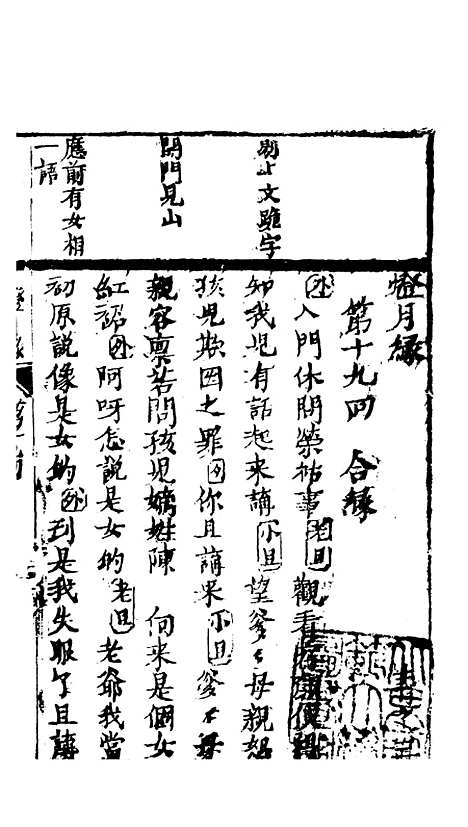 燈月緣
第十九回 合緣
外入門休問榮枯事老旦觀看容顏便得
知我兒有話起來講小旦望爹爹母親恕
孩兒欺罔之罪外你且講來小旦爹爹母
親容稟若問孩兒嬌姓陳 向來是個女
紅 外阿呀怎說是女的老旦老爺我當
初原說像是女的外到是我失眼了且講
文雖字
開門見山
應前有女相
一語